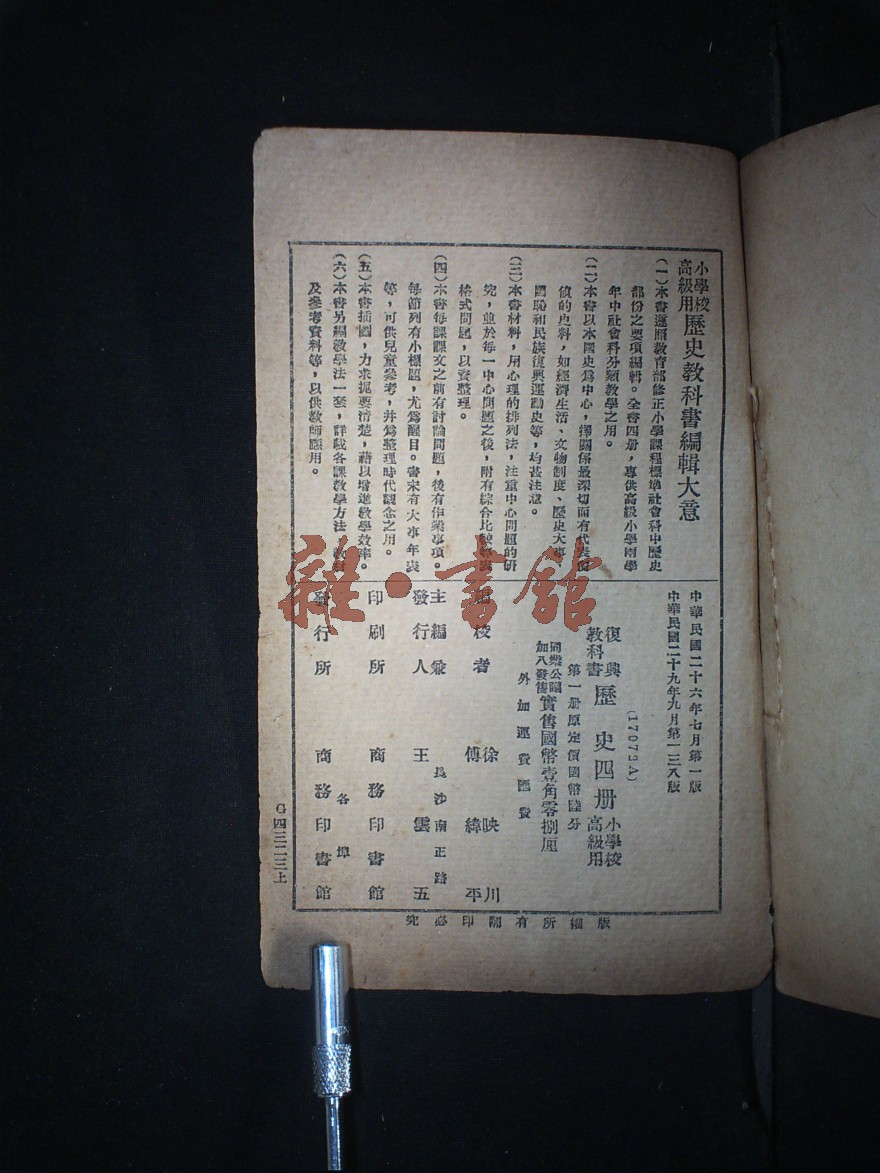 小學校高級用歷史教科書編輯大意
(一)本書遵照教育部修正小學課程標準社會科中歷史
部份之要項編輯。全書四册，專供高級小學兩學
年中社會科分類教學之用。
(二)本書以本國史為中心，擇關係最深切而有代表價
值的史料，如經濟生活、文物制度、歷史大事、
國恥和民族復興運動史等，均甚注意。
(三)本書材料，用心理的排列法，注重中心問題的研
究，並於每一中心問題之後，附有綜合比較等表
格式問題，以資整理。
(四)本書每課課文之前有討論問題，後有作業事項。
每節列有小標題，尤為醒目。書末有大事年表
等，可供兒童參考，并為整理時代觀念之用。
(五)本書插圖，力求扼要清楚，藉以增進教學效率。
(六)本書另編教學法一套，詳載各課教學方法、教材
及參考資料等，以供教師應用。
中華民國二十六年七月第一版
中華民國二十九年九月第一三八版
(17079A)
復興教科書 歷史四册 小學校高級用
第一册原定價國幣陸分
同業公議加八發售 實售國幣壹角零捌厘
外加運費匯費
編校者 徐映川 傅緯平
主編兼發行人 長沙南正路 王雲五
印刷所 商務印書館
發行所 各埠 商務印書館
版權所有翻印必究
G四三二三上
雜·書館